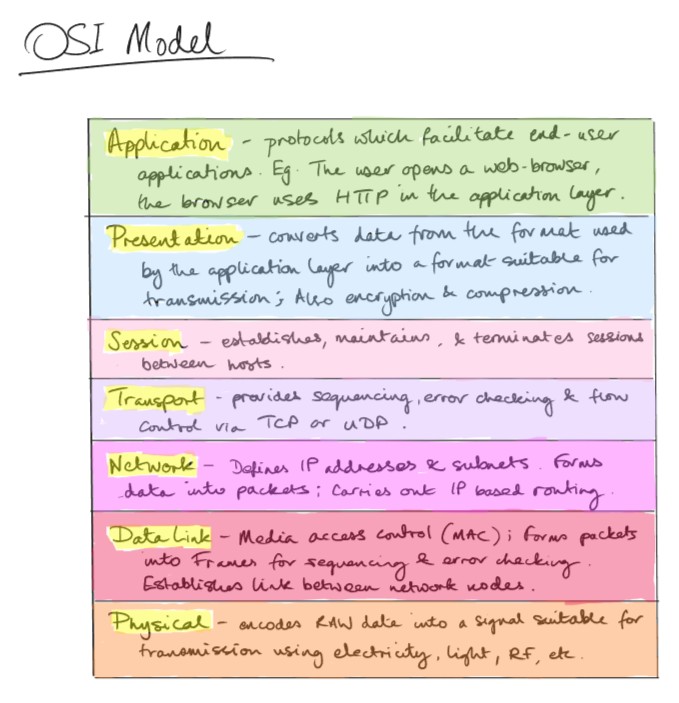 OSI Model
Application - protocols which facilitate end-user
applications. Eg. The user opens a web-browser,
the browser uses HTTP in the application layer.
Presentation - converts data from the format used
by the application layer into a format suitable for
transmission; Also encryption & compression.
Session - establishes, maintains, & terminates sessions
between hosts.
Transport - provides sequencing, error checking & flow
control via TCP or UDP.
Network - Defines IP addresses & subnets. Forms
data into packets; Carries out IP based routing.
Data Link - Media access control (MAC); forms packets
into Frames for sequencing & error checking.
Establishes link between network nodes.
Physical - encodes RAW data into a signal suitable for
transmission using electricity, light, RF, etc.